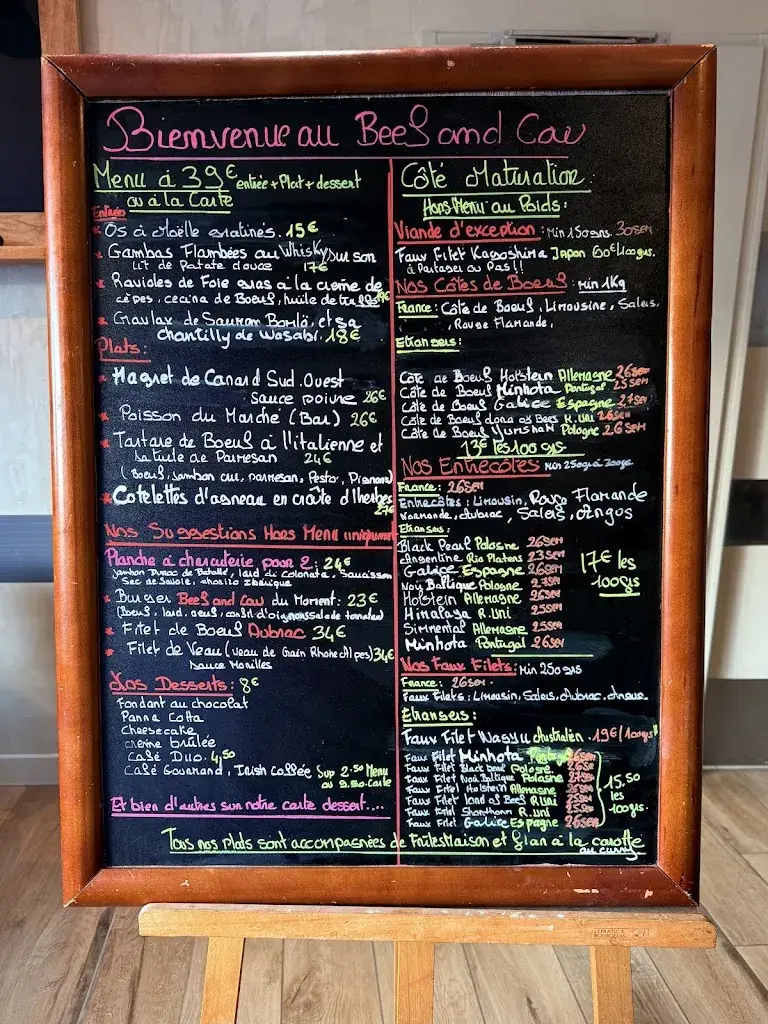 Bienvenue au Beef and Cow
Menu à 39€ entrée + Plat + dessert
ou à la Carte
Entrées
Os à Moëlle gratinés. 15€
Gambas Flambées au Whisky sur son
lit de Patate douce 17€
Ravioles de Foie gras à la crème de
cèpes, cecina de Boeuf, huile de truffes
Gravlax de Saumon Bomlö, et sa
chantilly de Wasabi. 18€
Plats:
Magret de Canard Sud. Ouest
sauce poivre 26€
Poisson du Marché (Bar) 26€
Tartare de Boeuf à l'italienne et
sa tuile de Parmesan 24€
(Boeuf, Jambon cru, parmesan, Pesto, Pignons)
Cotelettes d'agneau en croûte d'herbes
27€
Nos Suggestions Hors Menu uniquement
Planche à charcuterie pour 2: 24€
Jambon de Colonata, Saucisson
Sec de Savoie, chorizo Ibérique
Burger Beef and Cow du Moment: 23€
(Boeuf, lard, oeuf, confit d'oignons salade tomates)
Filet de Boeuf Aubrac 34€
Filet de Veau (Veau de Grain Rhône Alpes) 34€
sauce Morilles
Nos Desserts: 8€
Fondant au chocolat
Panna Cotta
Cheesecake
crème brûlée
Café Duo. 4,50
Café Gourmand, Irish Coffée Sup 2.50 Menu
ou 9.50 Carte
Et bien d'autres sur notre carte dessert....
Côté Maturation
Hors Menu au Poids:
Viande d'exception: Min 150grs 30sem
Faux Filet Kagoshima Japon 60€/100grs.
à Partager ou Pas!!
Nos Côtes de Boeuf: Min 1Kg
France: Côte de Boeuf, Limousine, Salers,
Rouge Flamande,
Etrangers:
Côte de Boeuf Holstein Allemagne 26sem
Côte de Boeuf Minhota Portugal 25sem
Côte de Boeuf Galice Espagne 27sem
Côte de Boeuf Land of Beef R.Uni 26sem
Côte de Boeuf Pologne 26sem
13€ les 100grs
Nos Entrecôtes Min 250grs à 300grs
France: 26sem
Entrecôtes: Limousin, Rouge Flamande
Normande, Aubrac, Salers, Angus
Etrangers:
Black Pearl Pologne 26sem
Argentine Rio Platens 23sem
Galice Espagne 26sem
Noij Baltique Pologne 27sem
Holstein Allemagne 26sem
Himalaya R.Uni 25sem
Simmental Allemagne 25sem
Minhota Portugal 26sem
17€ les
100grs
Nos Faux Filets: Min 250grs
France: 26sem.
Faux Filets: Limousin, Salers, Aubrac, Angus.
Etrangers:
Faux Filet Wagyu Australien. 19€/100grs
Faux Filet Minhota Portugal 26sem
Faux Filet Black Pearl Pologne 26sem
Faux Filet Noij Baltique Pologne 27sem
Faux Filet Holstein Allemagne 26sem
Faux Filet Land of Beef R.Uni 25sem
Faux Filet Shorthorn R.Uni 25sem
Faux Filet Galice Espagne 26sem
15,50
les
100grs.
Tous nos plats sont accompagnées de Frites Maison et flan à la carotte
au curry
LEFRANC &
BOURGEOIS